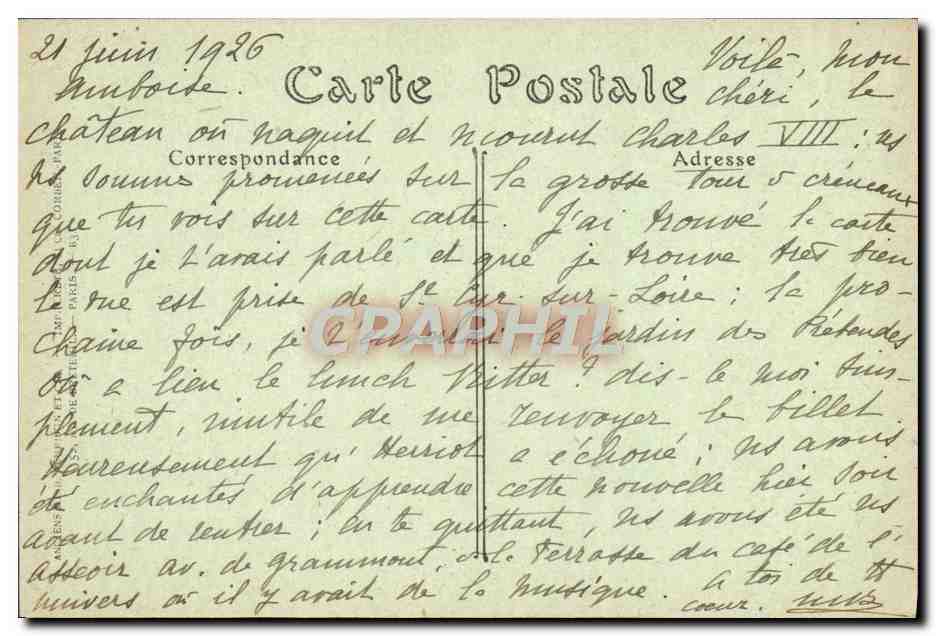 21 juin 1926
Amboise.
Carte Postale
Voilà, mon
chéri, le
château où naquit et mourut Charles VIII : ns
Correspondance
Adresse
ns sommes promenées sur la grosse tour à créneaux
que tu vois sur cette carte. J'ai trouvé la carte
dont je t'avais parlé et que je trouve très bien
la vue est prise de St Cyr-sur-Loire ; la pro-
CPRAPHIL
chaine fois, je t'enverrai le jardin des Prébendes
Où a lieu le lunch Ritter ? dis-le moi sim-
plement, inutile de me renvoyer le billet
Heureusement qu'Herriot a échoué ; ns avons
été enchantés d'apprendre cette nouvelle hier soir
avant de rentrer ; en te quittant, ns avons été ns
asseoir av. de grammont, à la Terrasse du café de l'
univers où il y avait de la musique. a toi de tt
coeur.